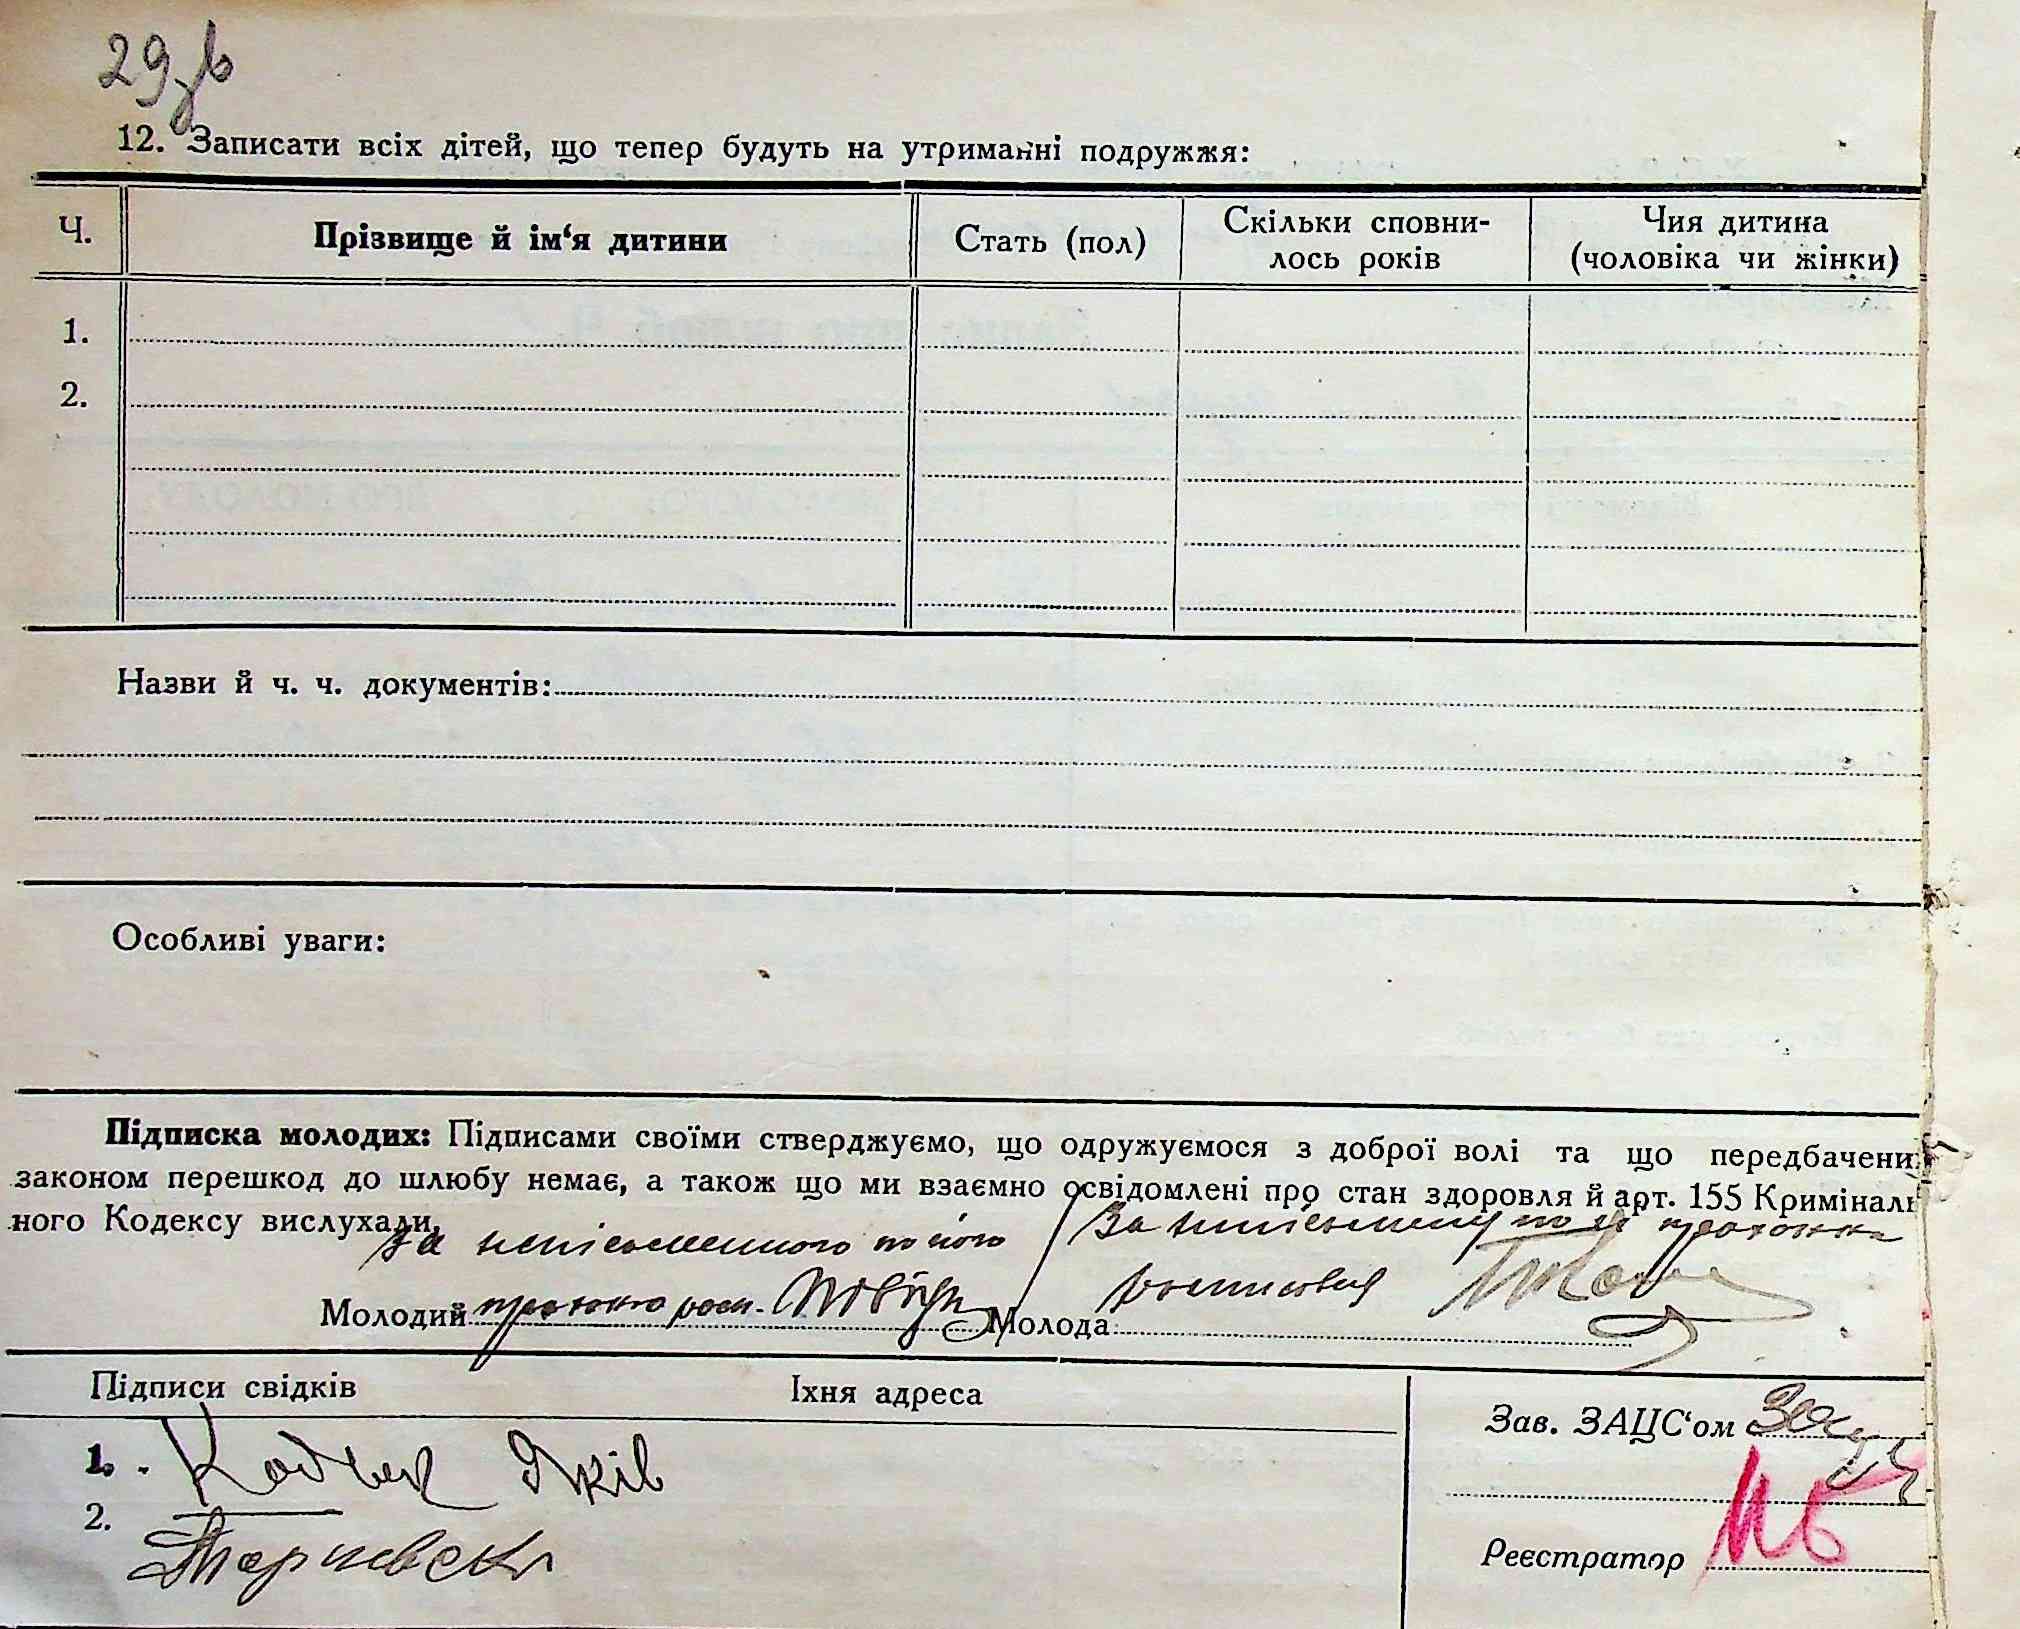 29
12. Записати всіх дітей, що тепер будуть на утриманні подружжя:
Ч. Прізвище й ім‘я дитини Стать (пол) Скільки сповни-лось років Чия дитина (чоловіка чи жінки)
1.
2.
Назви й ч. ч. документів:
Особливі уваги:
Підписка молодих: Підписами своїми стверджуємо, що одружуємося з доброї волі та що передбачени
законом перешкод до шлюбу немає, а також що ми взаємно освідомлені про стан здоровля й арт. 155 Криміналь
ного Кодексу вислухали.
за неписьменного по його За неписьменну по її проханню
Молодий проханю розп. Молода розписався
Підписи свідків Їхня адреса
Зав. ЗАЦС‘ом
1. Яків
2.
Реєстратор